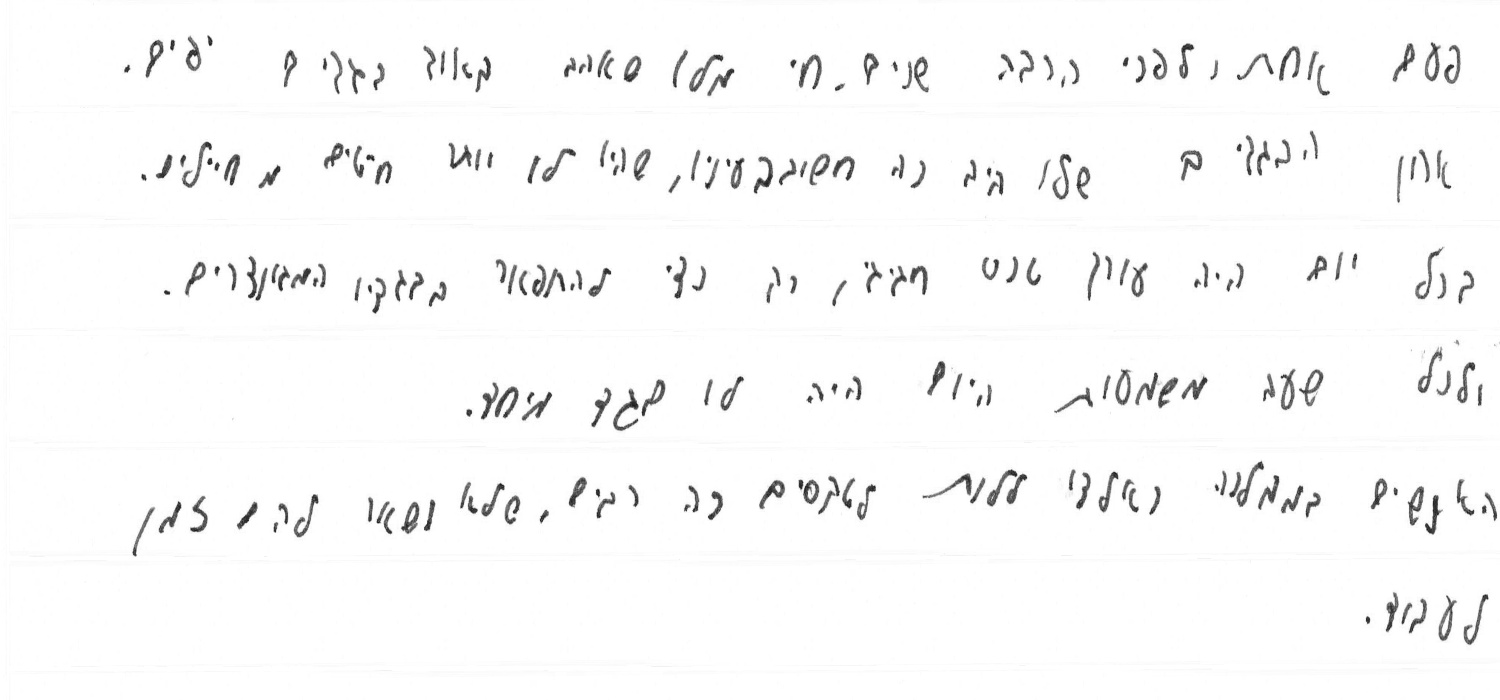 פעם אחת, לפני הרבה שנים. חי מלך שאהב מאוד בגדים יפים.
ארון הבגדים שלו היה כה חשוב בעיניו, שהיו לו יותר חייטים מחיילים.
בכל יום היה עורך טכס חגיגי, רק כדי להתפאר בבגדיו המגונדרים.
ולכל שעה משמעות היום היה לו בגד מיוחד.
האנשים בממלכה נאלצו ללכת לטקסים כה רבים, שלא נשאר להם זמן
לעבוד.